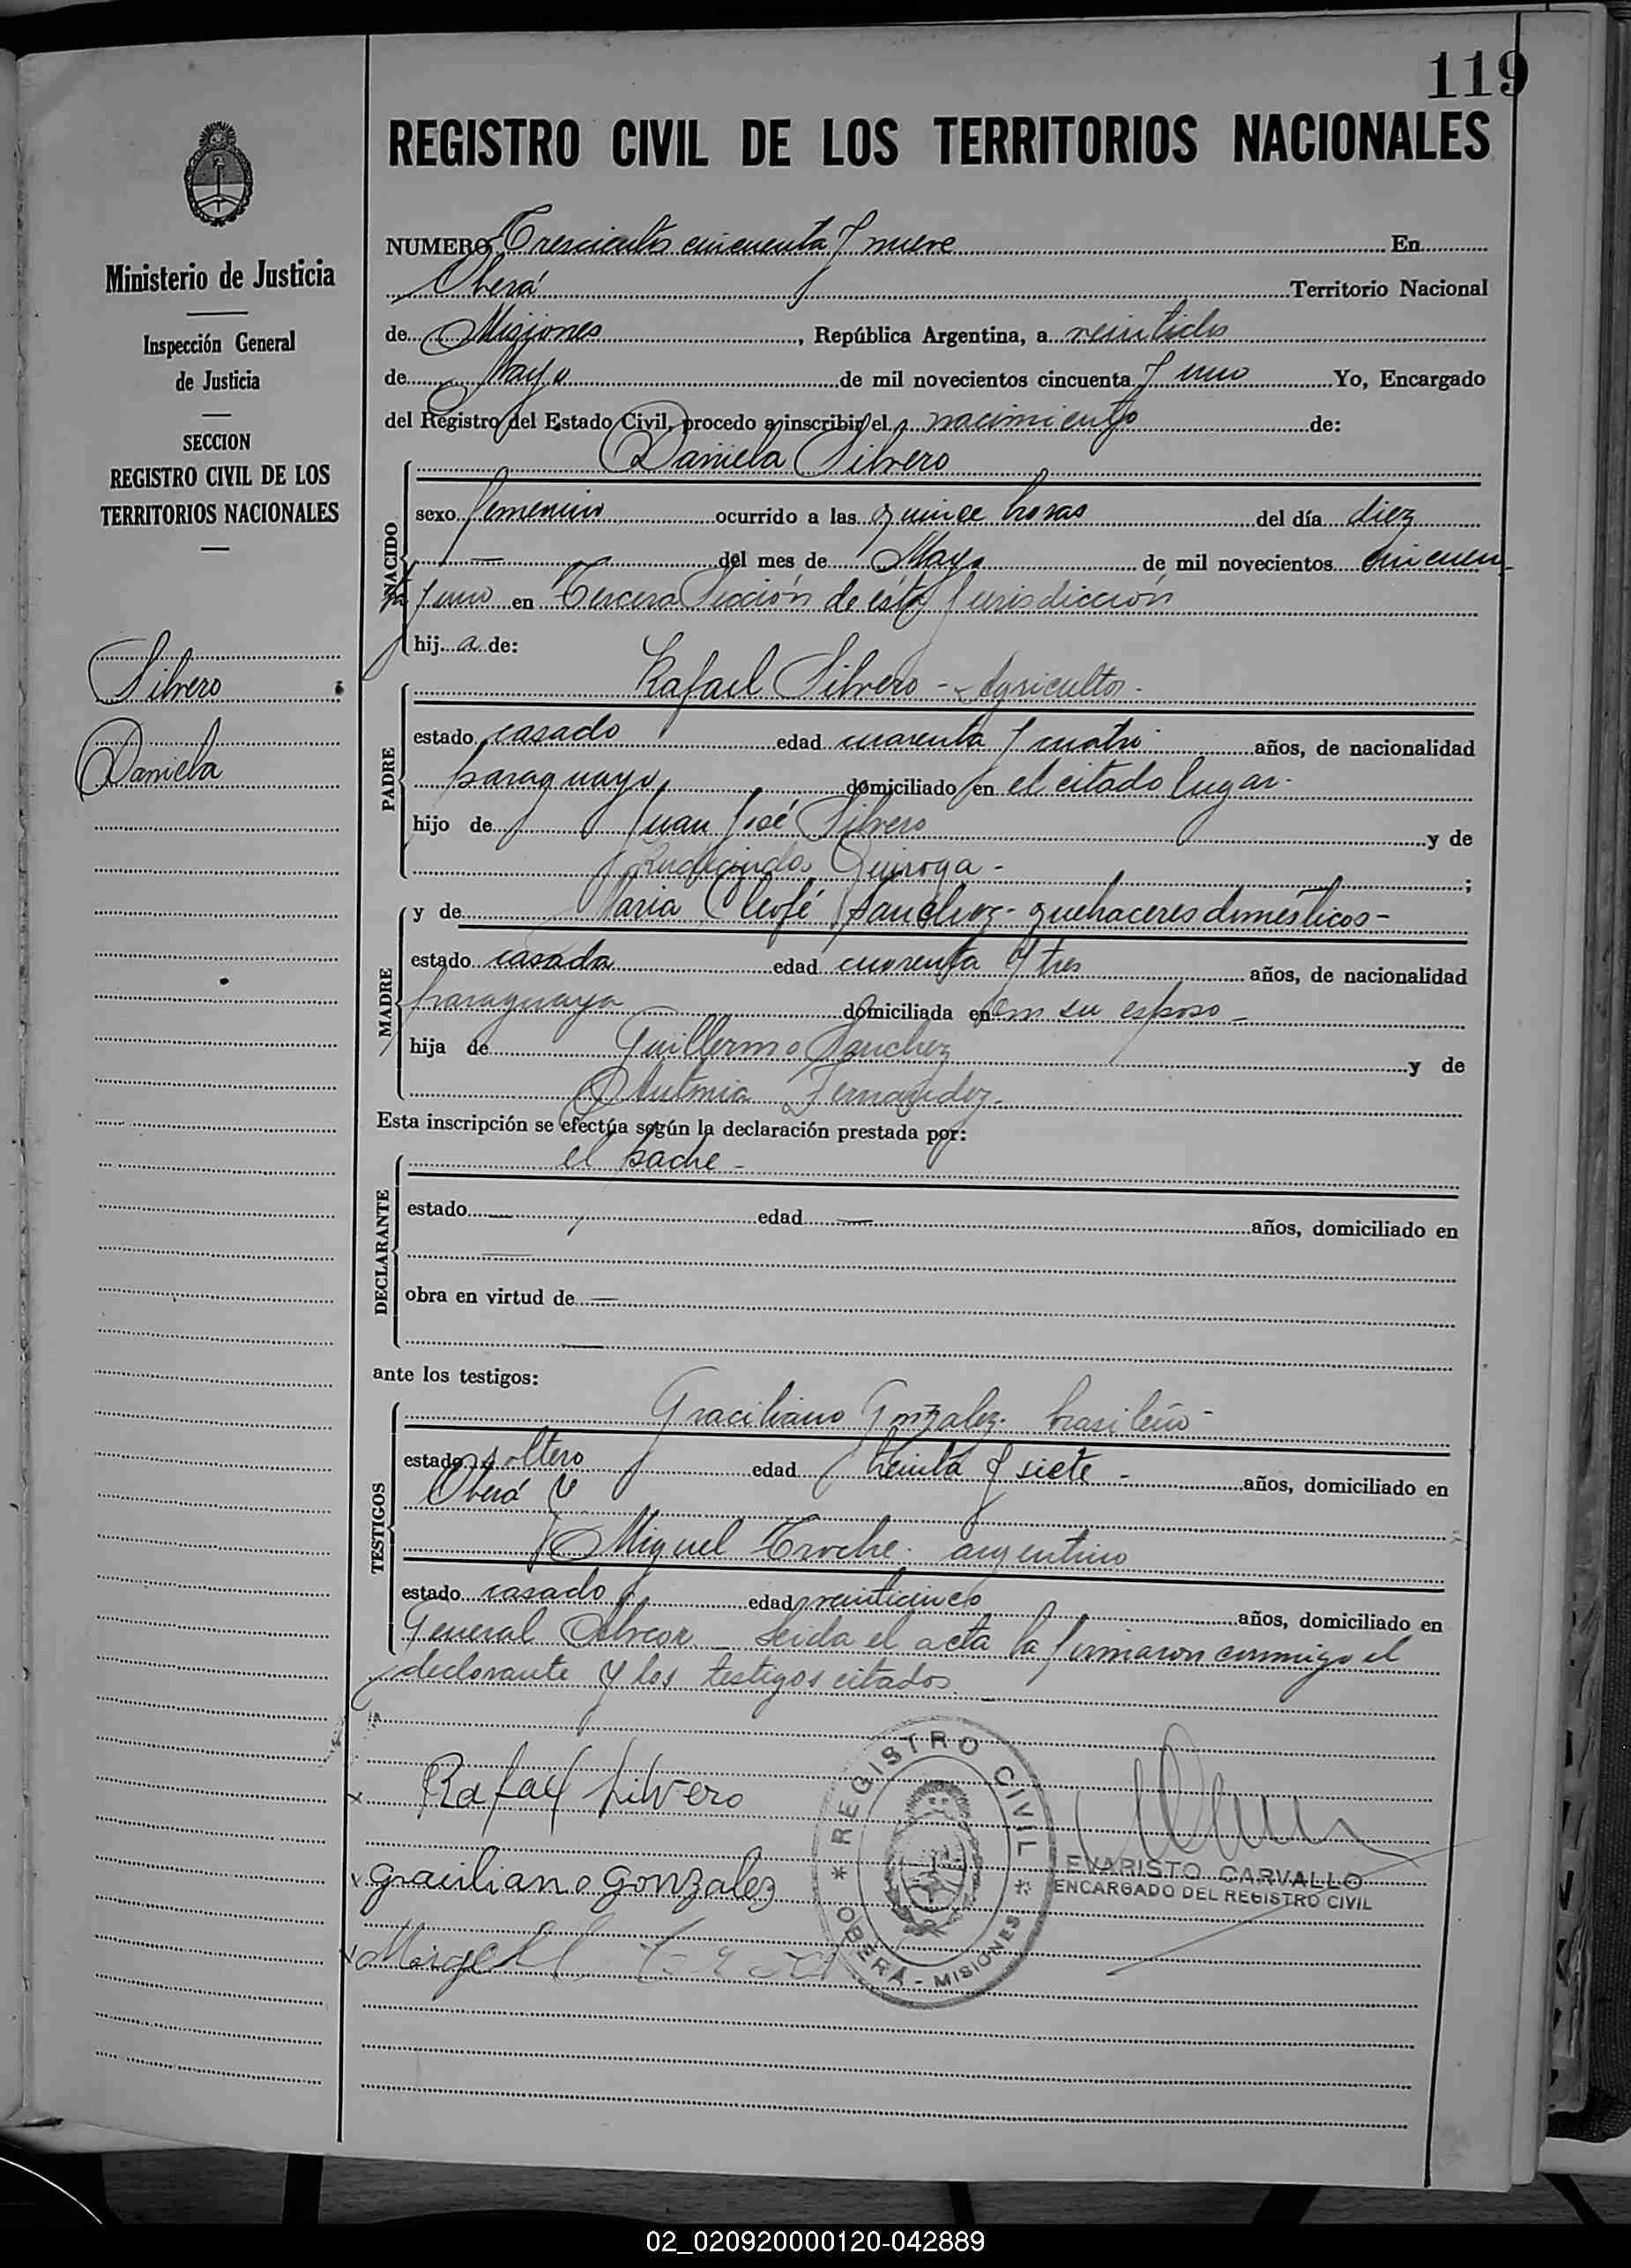 119
REGISTRO CIVIL DE LOS TERRITORIOS NACIONALES
Ministerio de Justicia
Inspección General
de Justicia
SECCION
REGISTRO CIVIL DE LOS
TERRITORIOS NACIONALES
Silvero
Daniela
NUMERO Trescientos cincuenta y nueve En
Oberá Territorio Nacional
de Misiones, República Argentina, a veintidos
de Mayo de mil novecientos cincuenta y uno Yo, Encargado
del Registro del Estado Civil, procedo a inscribir el nacimiento de:
Daniela Silvero
NACIDO
sexo femenino ocurrido a las quince horas del día diez
— del mes de Mayo de mil novecientos cincuen-
ta y uno en Tercera Sección de ésta Jurisdicción
hija de:
Rafael Silvero - Agricultor -
PADRE
estado casado edad cuarenta y cuatro años, de nacionalidad
paraguayo domiciliado en el citado lugar -
hijo de Juan José Silvero y de
Quiroga - ;
MADRE
y de Maria Cleofé Sanchez - quehaceres domésticos -
estado casada edad cuarenta y tres años, de nacionalidad
paraguaya domiciliada en con su esposo -
hija de Guillermo Sanchez y de
Antonia Fernandez -
Esta inscripción se efectúa según la declaración prestada por:
el padre -
DECLARANTE
estado — edad — años, domiciliado en
—
obra en virtud de —
—
ante los testigos:
TESTIGOS
Graciliano Gonzalez - brasileño -
estado soltero edad treinta y siete - años, domiciliado en
Oberá y
Miguel Troche - argentino
estado casado edad veinticinco años, domiciliado en
General Alvear - Leida el acta la firmaron conmigo el
declarante y los testigos citados -
x Rafael Silvero
x graciliano gonzalez
x
* REGISTRO CIVIL *
OBERÁ - MISIONES
EVARISTO CARVALLO
ENCARGADO DEL REGISTRO CIVIL
02_020920000120-042889